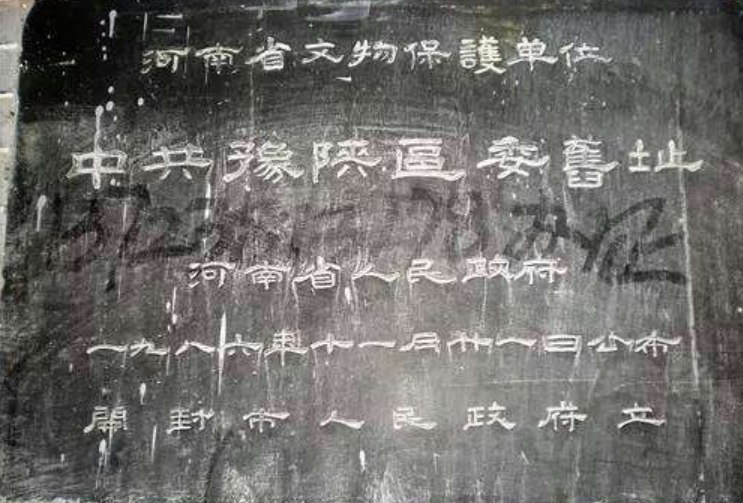 河南省文物保護单位
中共豫陕區委舊址
河南省人民政府
一九八六年十一月廿一日公布
開封市人民政府立